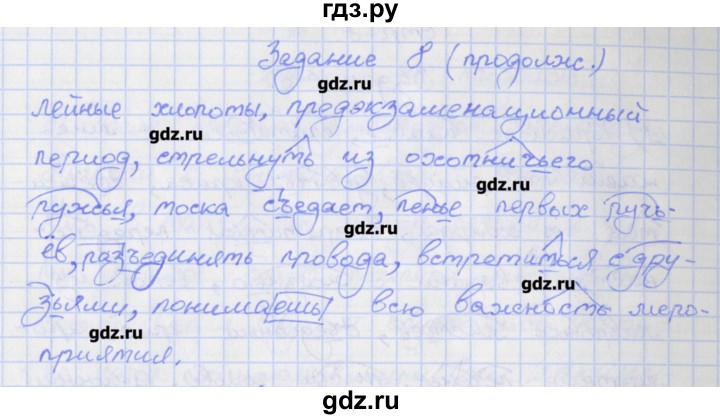 гдз.ру
Задание 8 (продолж.)
gdz.ru
лейные хлопоты, предэкзаменационный
gdz.ru
период, стрельнуть из охотничьего
gdz.ru
ружья, тоска съедает, пенье первых ручь-
gdz.ru
ёв, разъединять провода, встретиться с дру-
gdz.ru
зьями, понимаешь всю важность меро-
gdz.ru
приятия.
gdz.ru